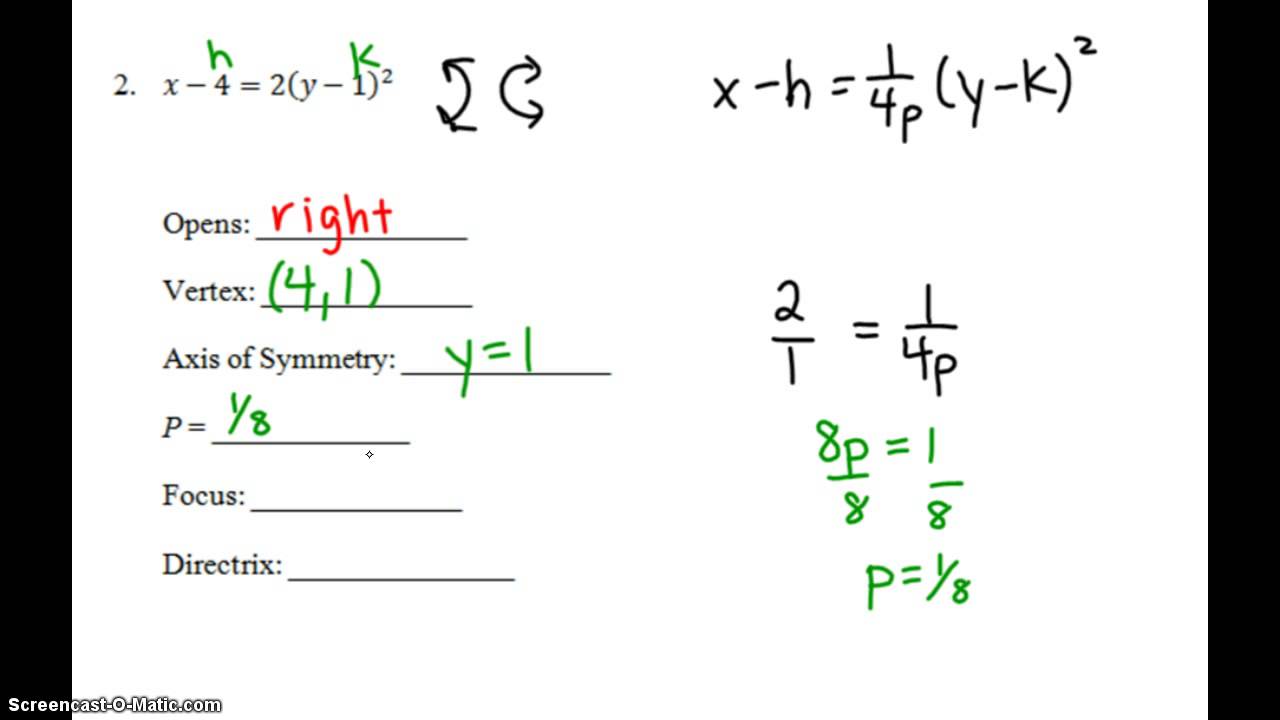 h k
2. x − 4 = 2(y − 1)²
x − h = 1/4p (y − k)²
Opens: right
Vertex: (4, 1)
Axis of Symmetry: y = 1
P = 1/8
Focus:
Directrix:
2/1 = 1/4p
8p/8 = 1/8
p = 1/8
Screencast-O-Matic.com